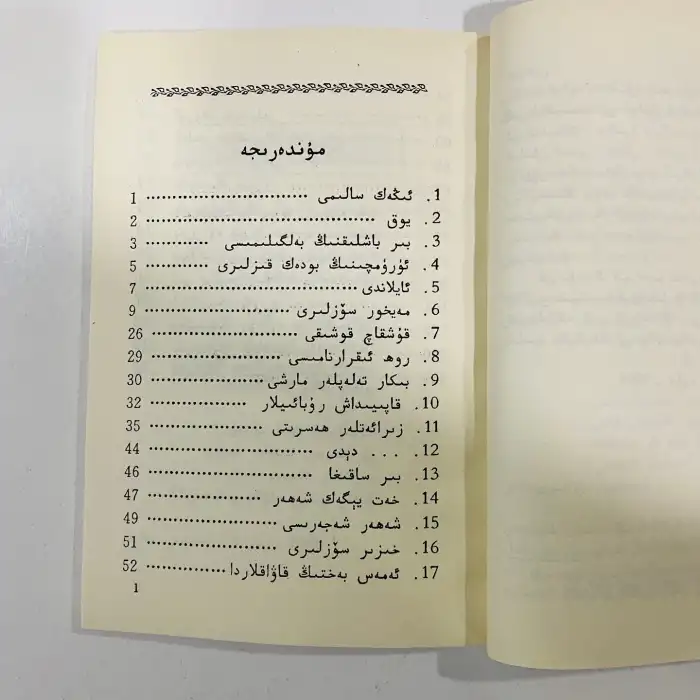 مۇندەرىجە
1. ئىڭەك سالىمى ............ 1
2. يوق ............ 2
3. بىر باشلىقنىڭ بەلگىلىمىسى ............ 3
4. ئۈرۈمچىنىڭ بودەك قىزلىرى ............ 5
5. ئايلاندى ............ 7
6. مەيخور سۆزلىرى ............ 9
7. قۇشقاچ قوشىقى ............ 26
8. روھ ئىقرارنامىسى ............ 29
9. بىكار تەلەپلەر مارشى ............ 30
10. قاپىيىداش رۇبائىيلار ............ 32
11. زىرائەتلەر ھەسرىتى ............ 35
12. ... دېدى ............ 44
13. بىر ساقىغا ............ 46
14. خەت يېگەك شەھەر ............ 47
15. شەھەر شەجەرىسى ............ 49
16. خىزىر سۆزلىرى ............ 51
17. ئەمەس بەختىڭ قاۋاقلاردا ............ 52
1